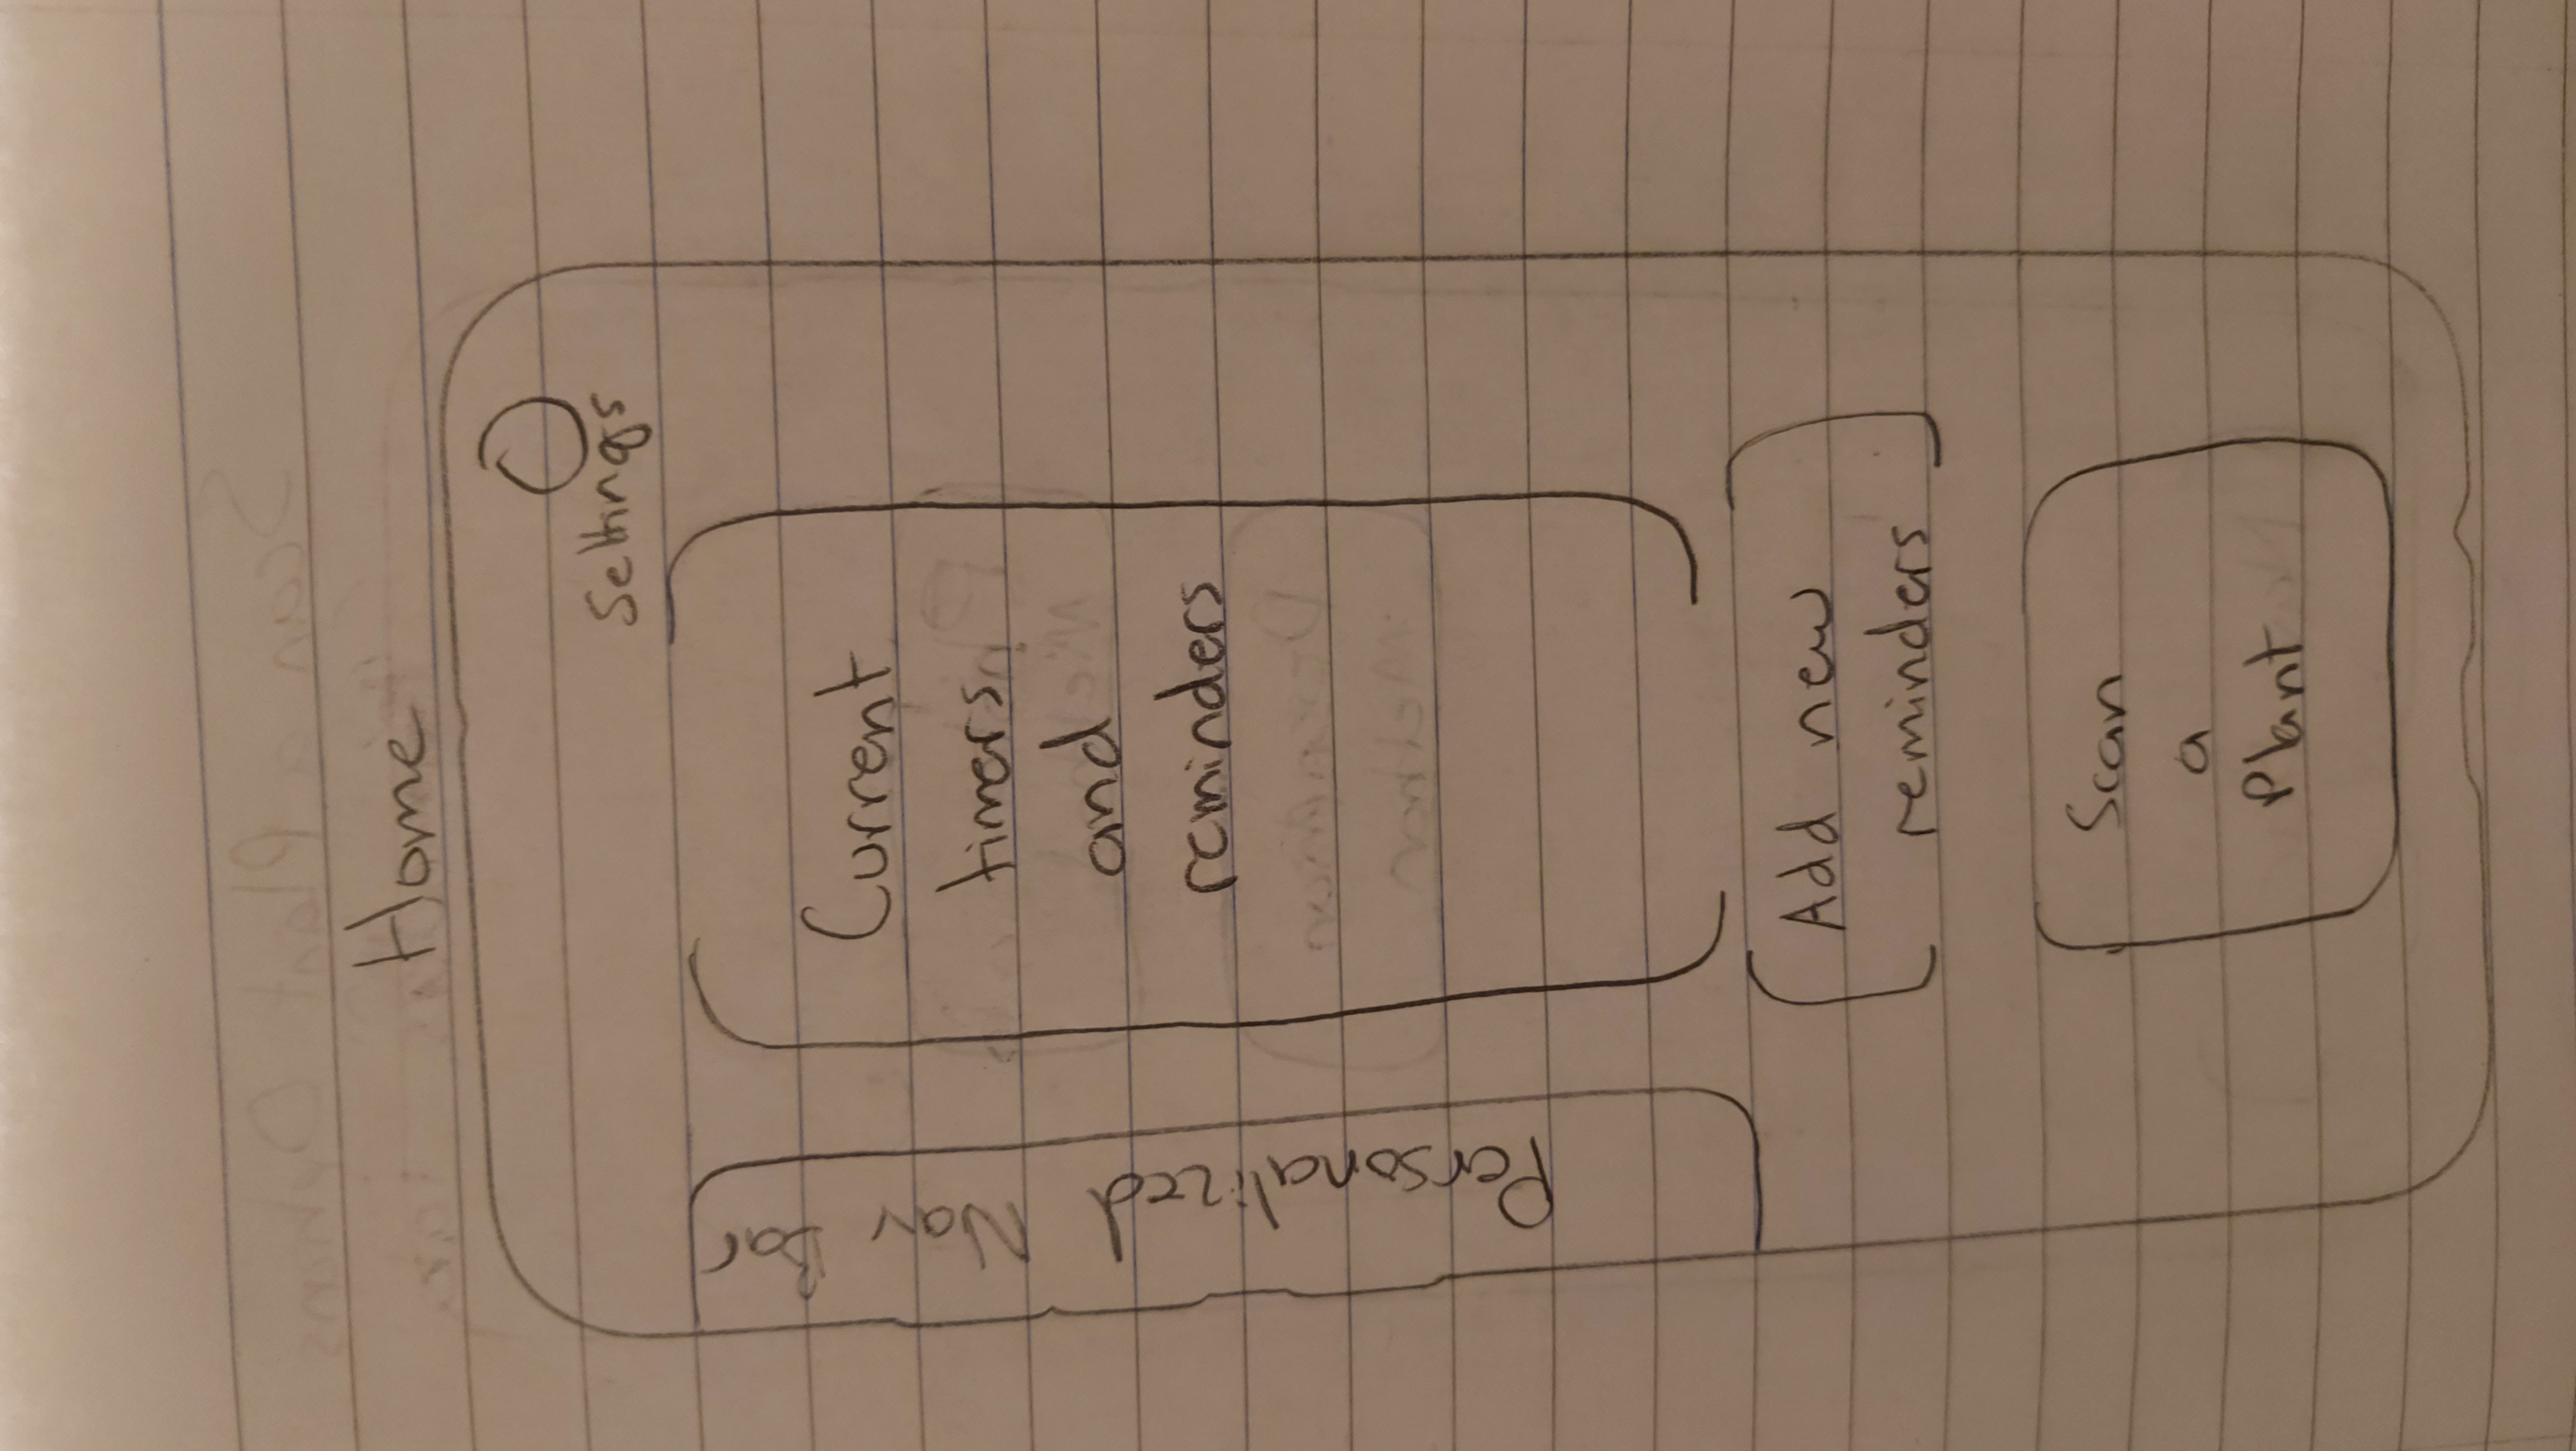 Scan a Plant Options
Home
Settings
Personalized Nav Bar
Current
timers
and
reminders
Add new
reminders
Scan
a
Plant